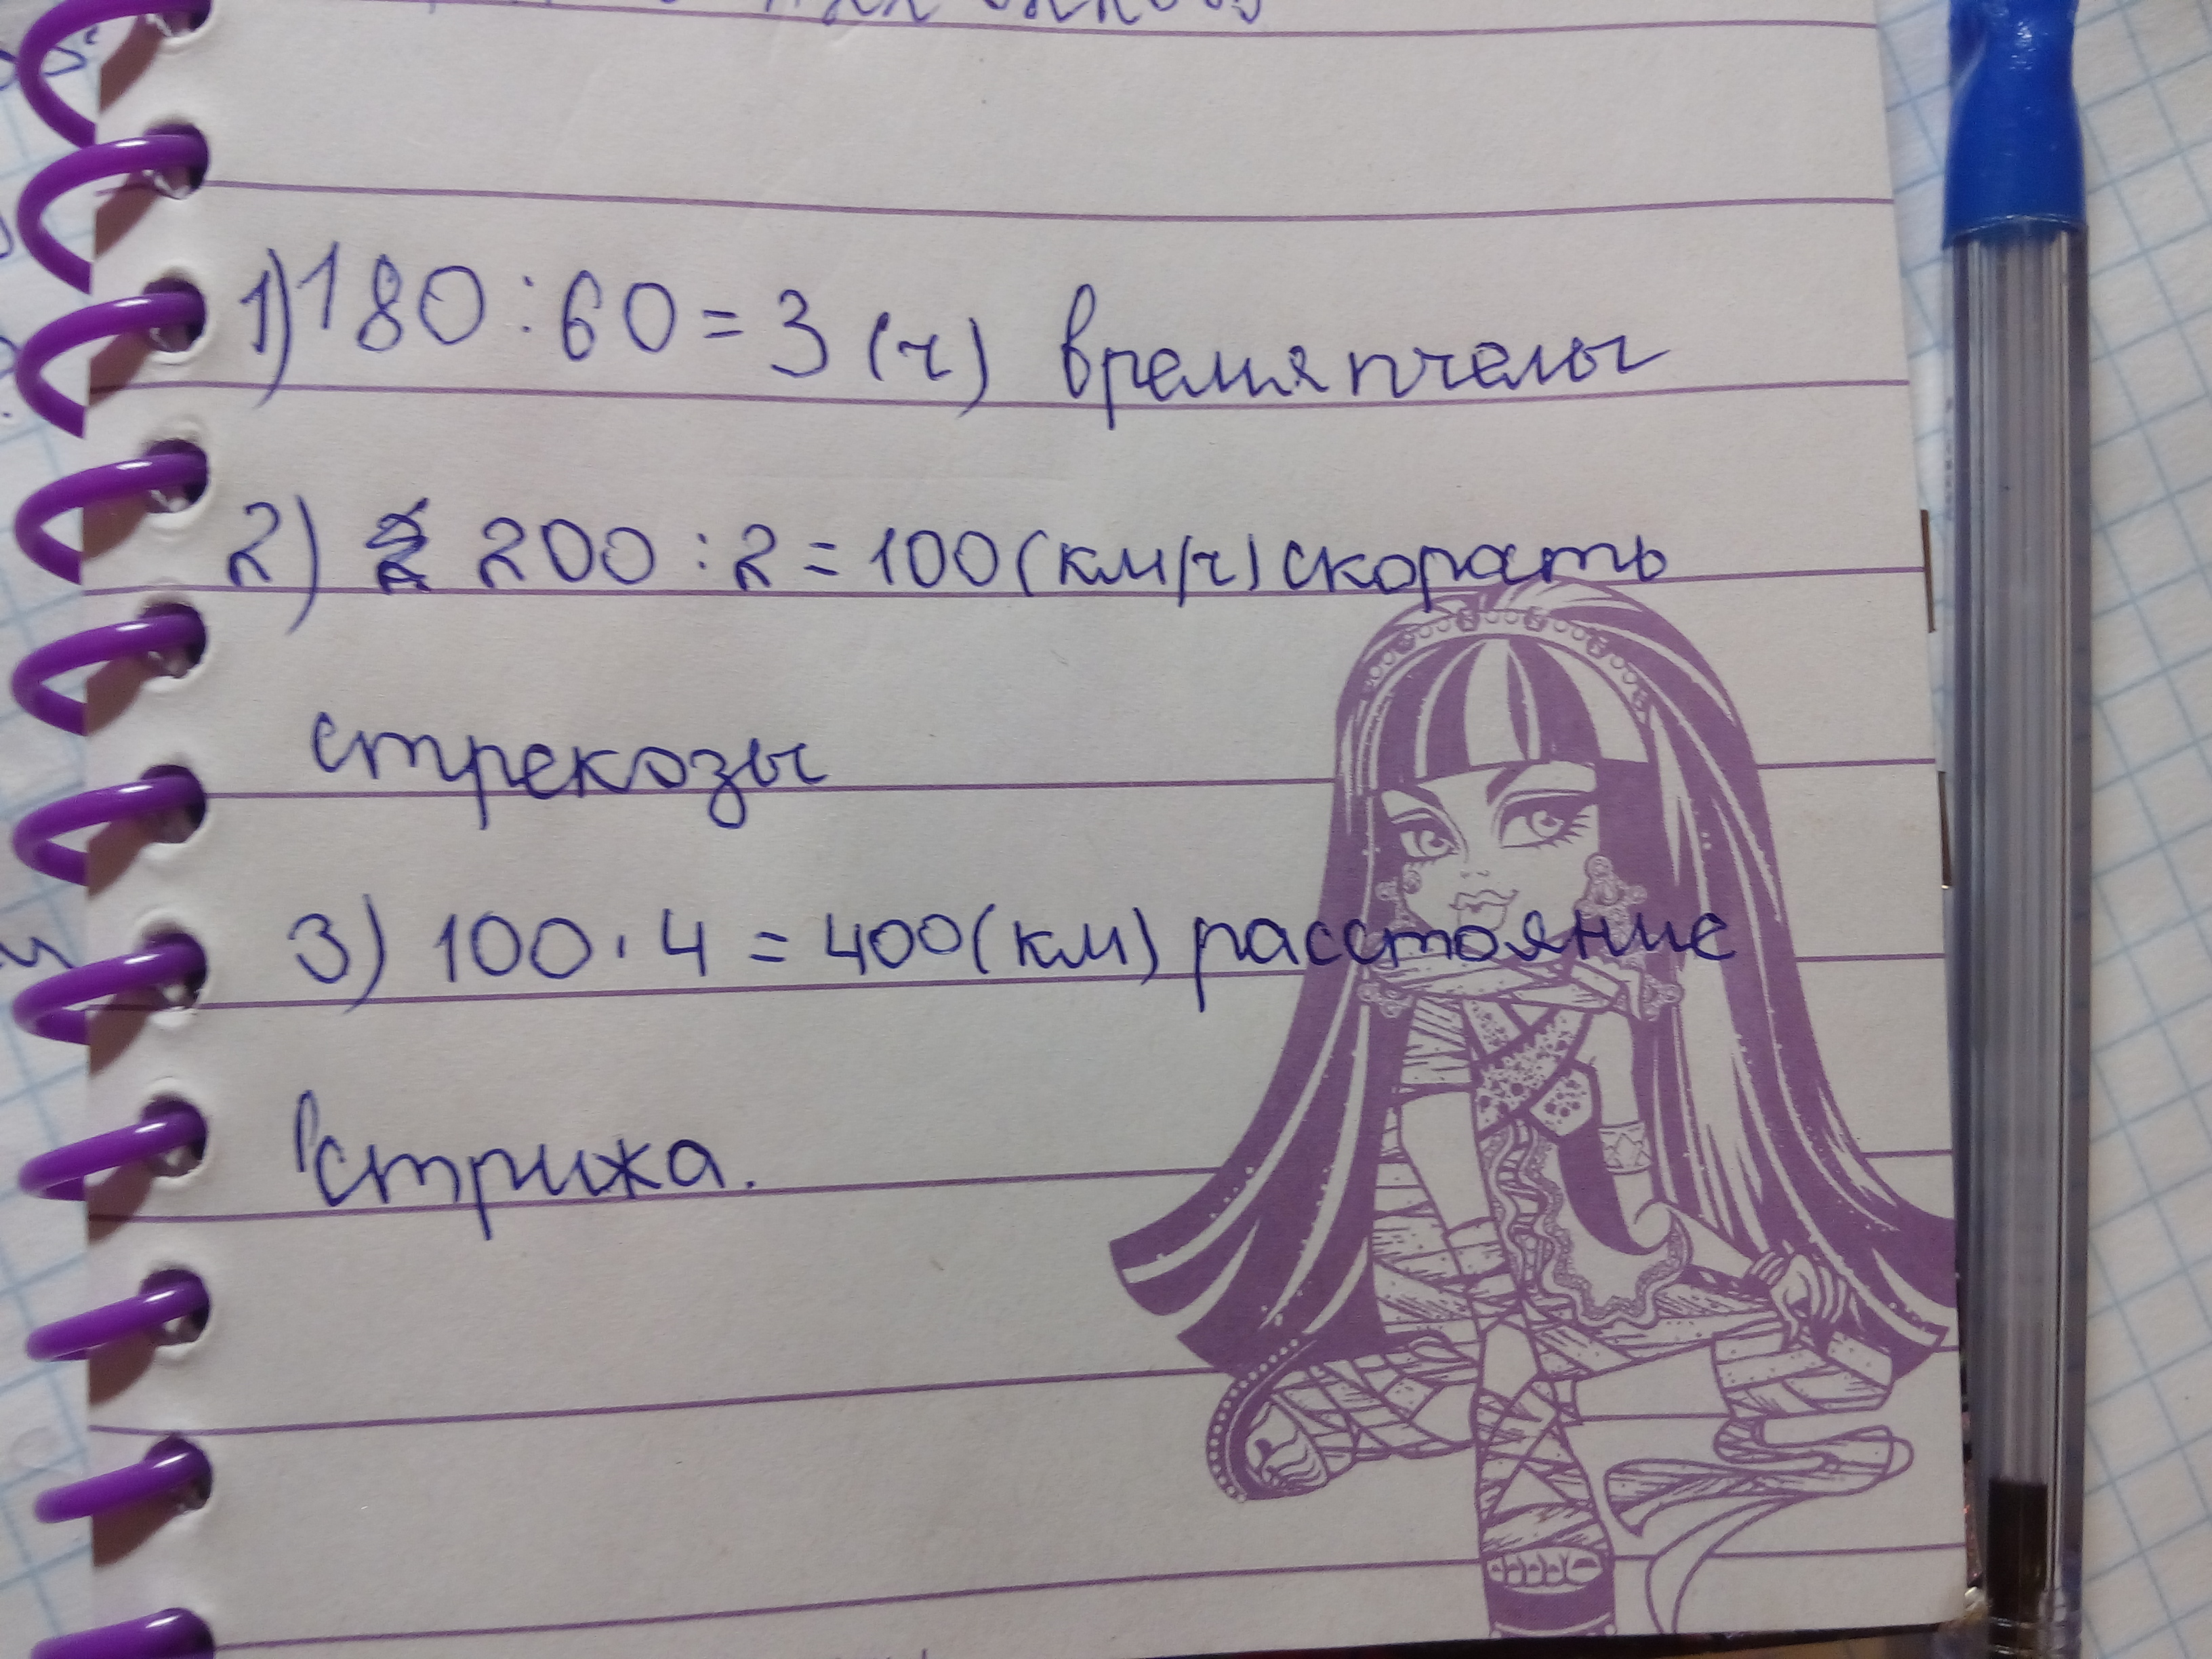 1) 180 : 60 = 3 (ч) время пчелы
2) 200 : 2 = 100 (км/ч) скорасть
стрекозы
3) 100 · 4 = 400 (км) расстояние
стрижа.